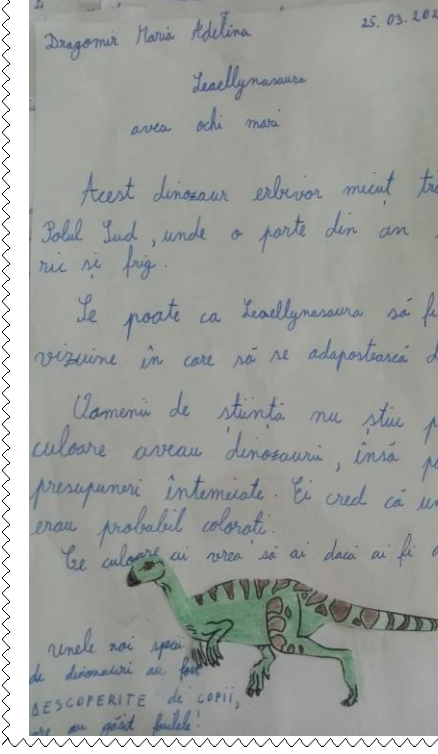 Dragomir Maria Adelina 25.03.202
Leaellynasaura
avea ochi mari
Acest dinozaur erbivor micuț tr
Polul Sud, unde o parte din an
ric și frig.
Se poate ca Leaellynasaura să fi
vizuine în care să se adapostească d
Oamenii de știință nu știu p
culoare aveau dinozaurii, însă p
presupuneri întemeiate. Ei cred că un
erau probabil colorati.
Ce culoare ai vrea să ai dacă ai fi
Unele noi speci
de dinozauri au fost
DESCOPERITE de COPII,
are au găsit fosilele!